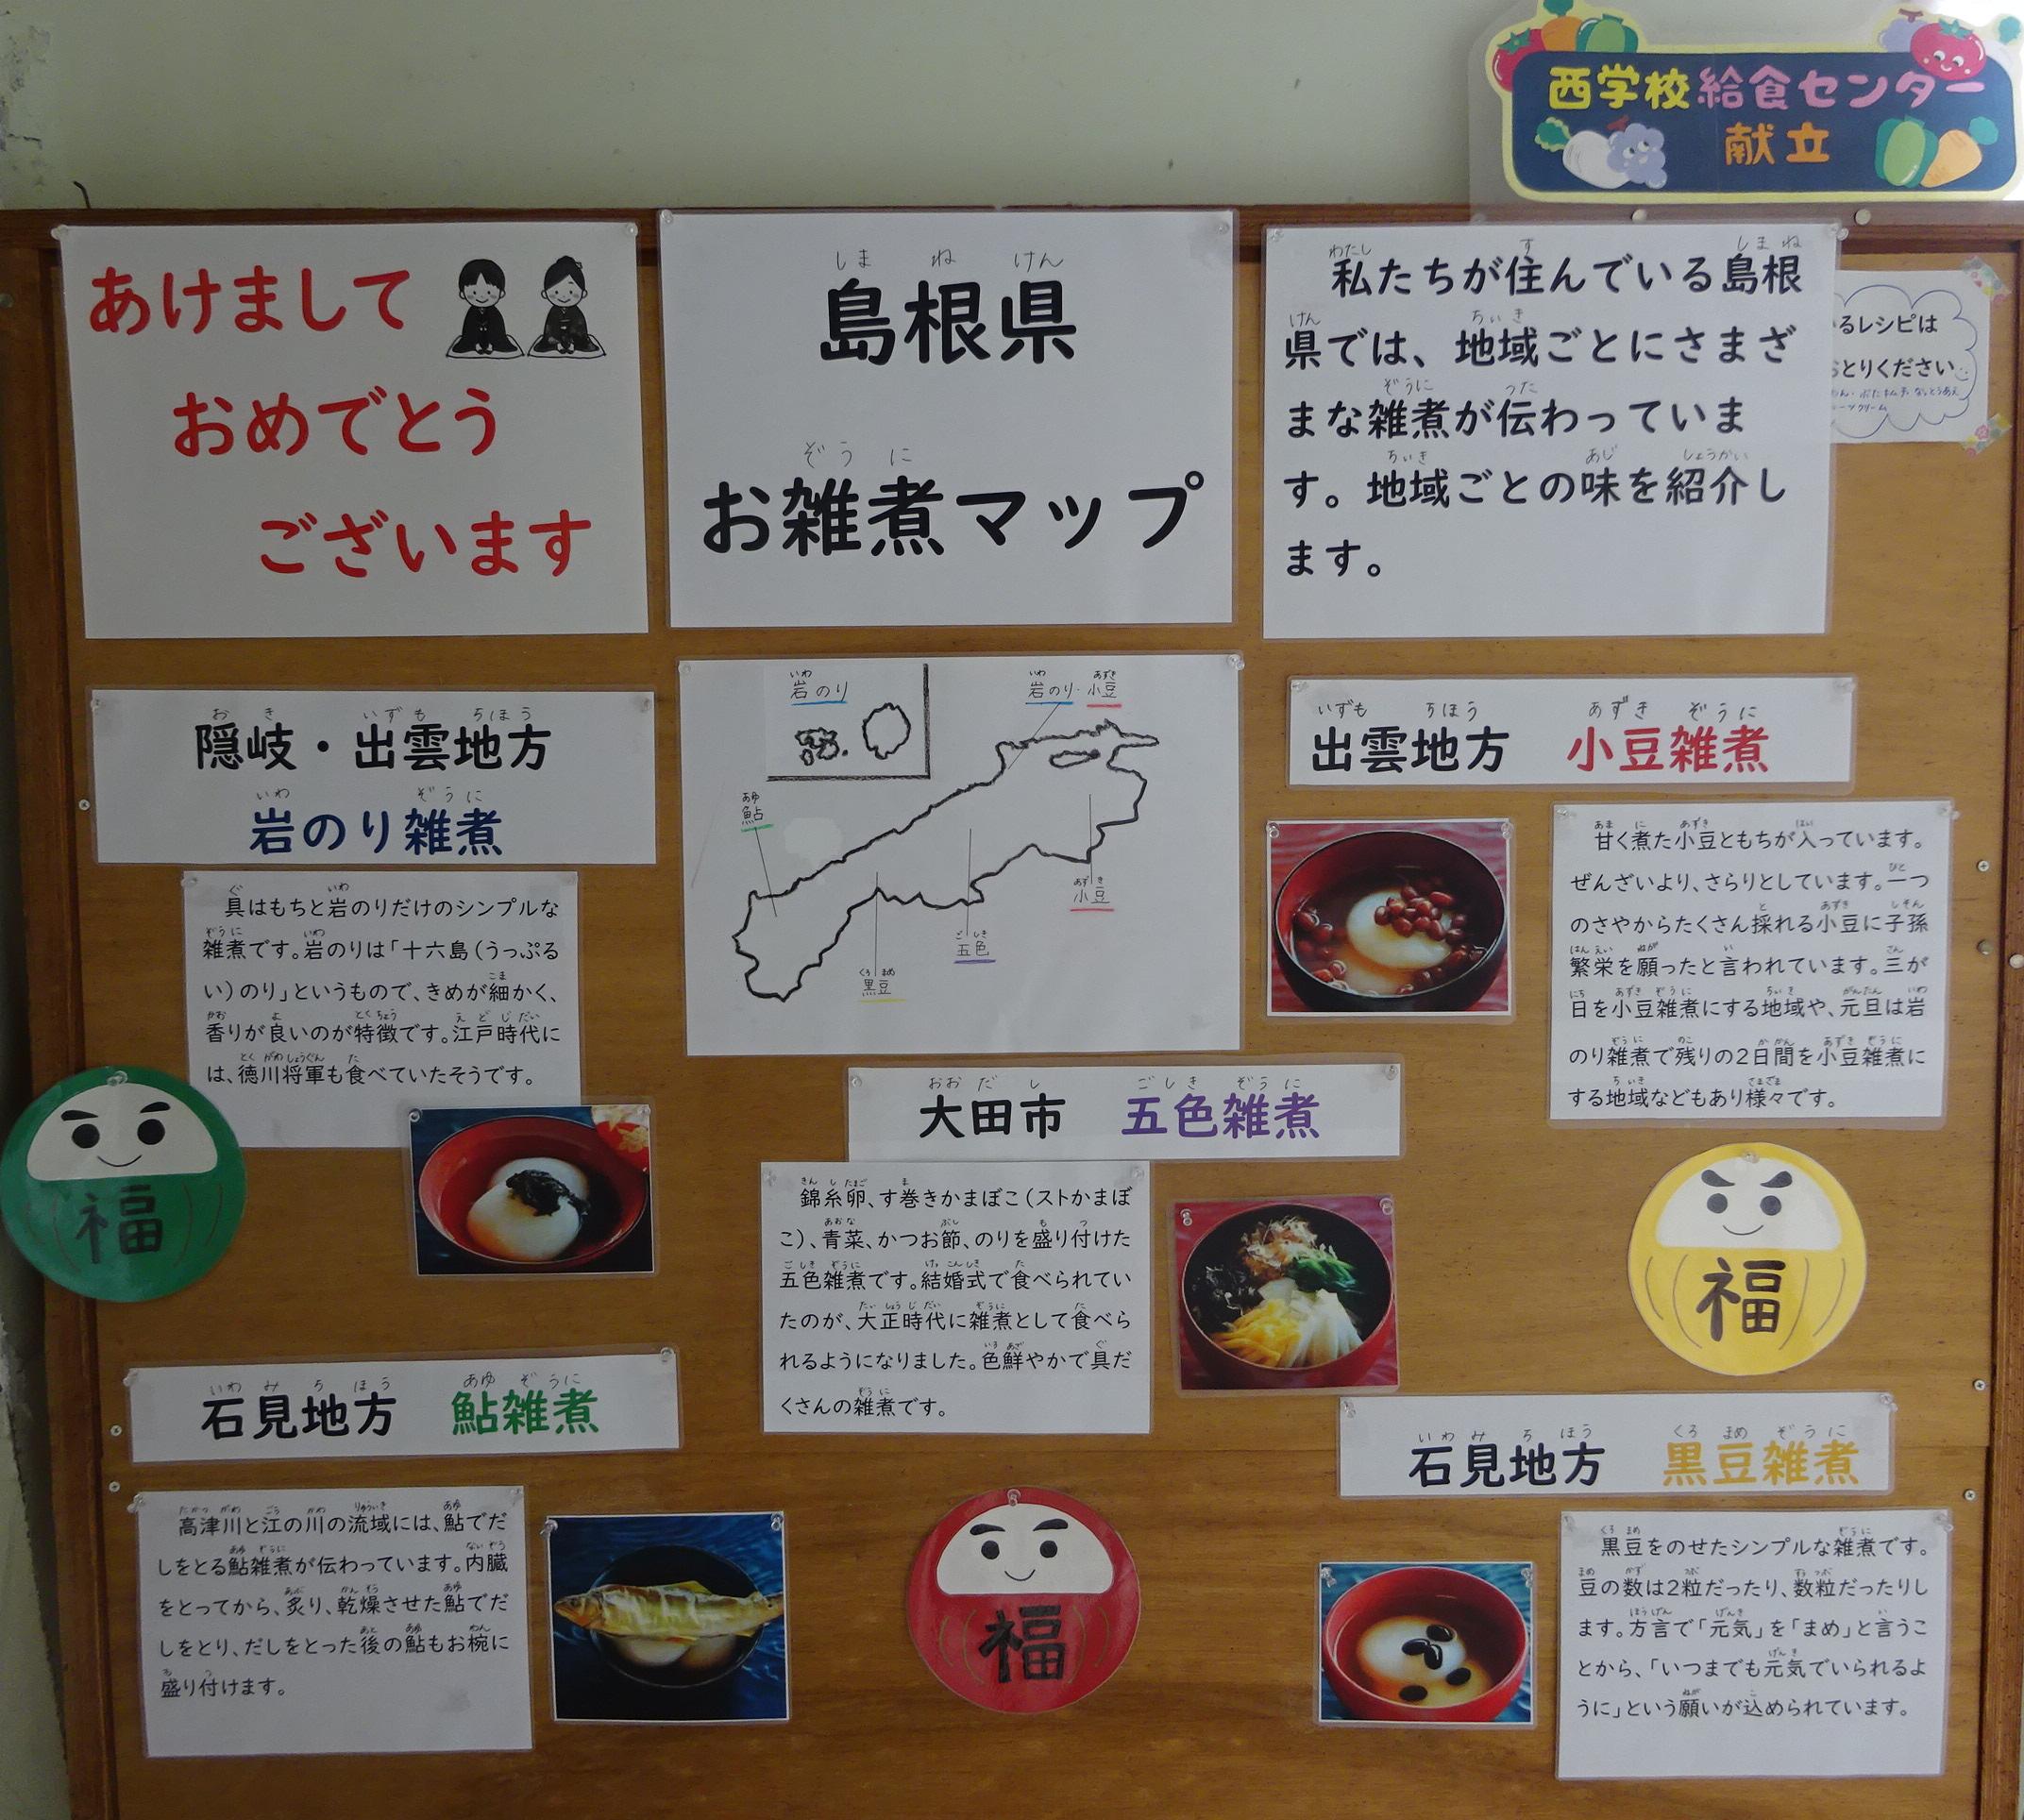 西学校給食センター
献立
あけまして
おめでとう
ございます
島根県
お雑煮マップ
私たちが住んでいる島根
県では、地域ごとにさまざ
まな雑煮が伝わっていま
す。地域ごとの味を紹介し
ます。
るレシピは
とりください
隠岐・出雲地方
岩のり雑煮
具はもちと岩のりだけのシンプルな
雑煮です。岩のりは「十六島(うっぷる
い)のり」というもので、きめが細かく、
香りが良いのが特徴です。江戸時代に
は、徳川将軍も食べていたそうです。
岩のり
岩のり・小豆
鮎
小豆
五色
黒豆
出雲地方 小豆雑煮
甘く煮た小豆ともちが入っています。
ぜんざいより、さらりとしています。一つ
のさやからたくさん採れる小豆に子孫
繁栄を願ったと言われています。三が
日を小豆雑煮にする地域や、元旦は岩
のり雑煮で残りの2日間を小豆雑煮に
する地域などもあり様々です。
大田市 五色雑煮
錦糸卵、す巻きかまぼこ(ストかまぼ
こ)、青菜、かつお節、のりを盛り付けた
五色雑煮です。結婚式で食べられてい
たのが、大正時代に雑煮として食べら
れるようになりました。色鮮やかで具だ
くさんの雑煮です。
福
福
石見地方 鮎雑煮
高津川と江の川の流域には、鮎でだ
しをとる鮎雑煮が伝わっています。内臓
をとってから、炙り、乾燥させた鮎でだ
しをとり、だしをとった後の鮎もお椀に
盛り付けます。
福
石見地方 黒豆雑煮
黒豆をのせたシンプルな雑煮です。
豆の数は2粒だったり、数粒だったりし
ます。方言で「元気」を「まめ」と言うこ
とから、「いつまでも元気でいられるよ
うに」という願いが込められています。